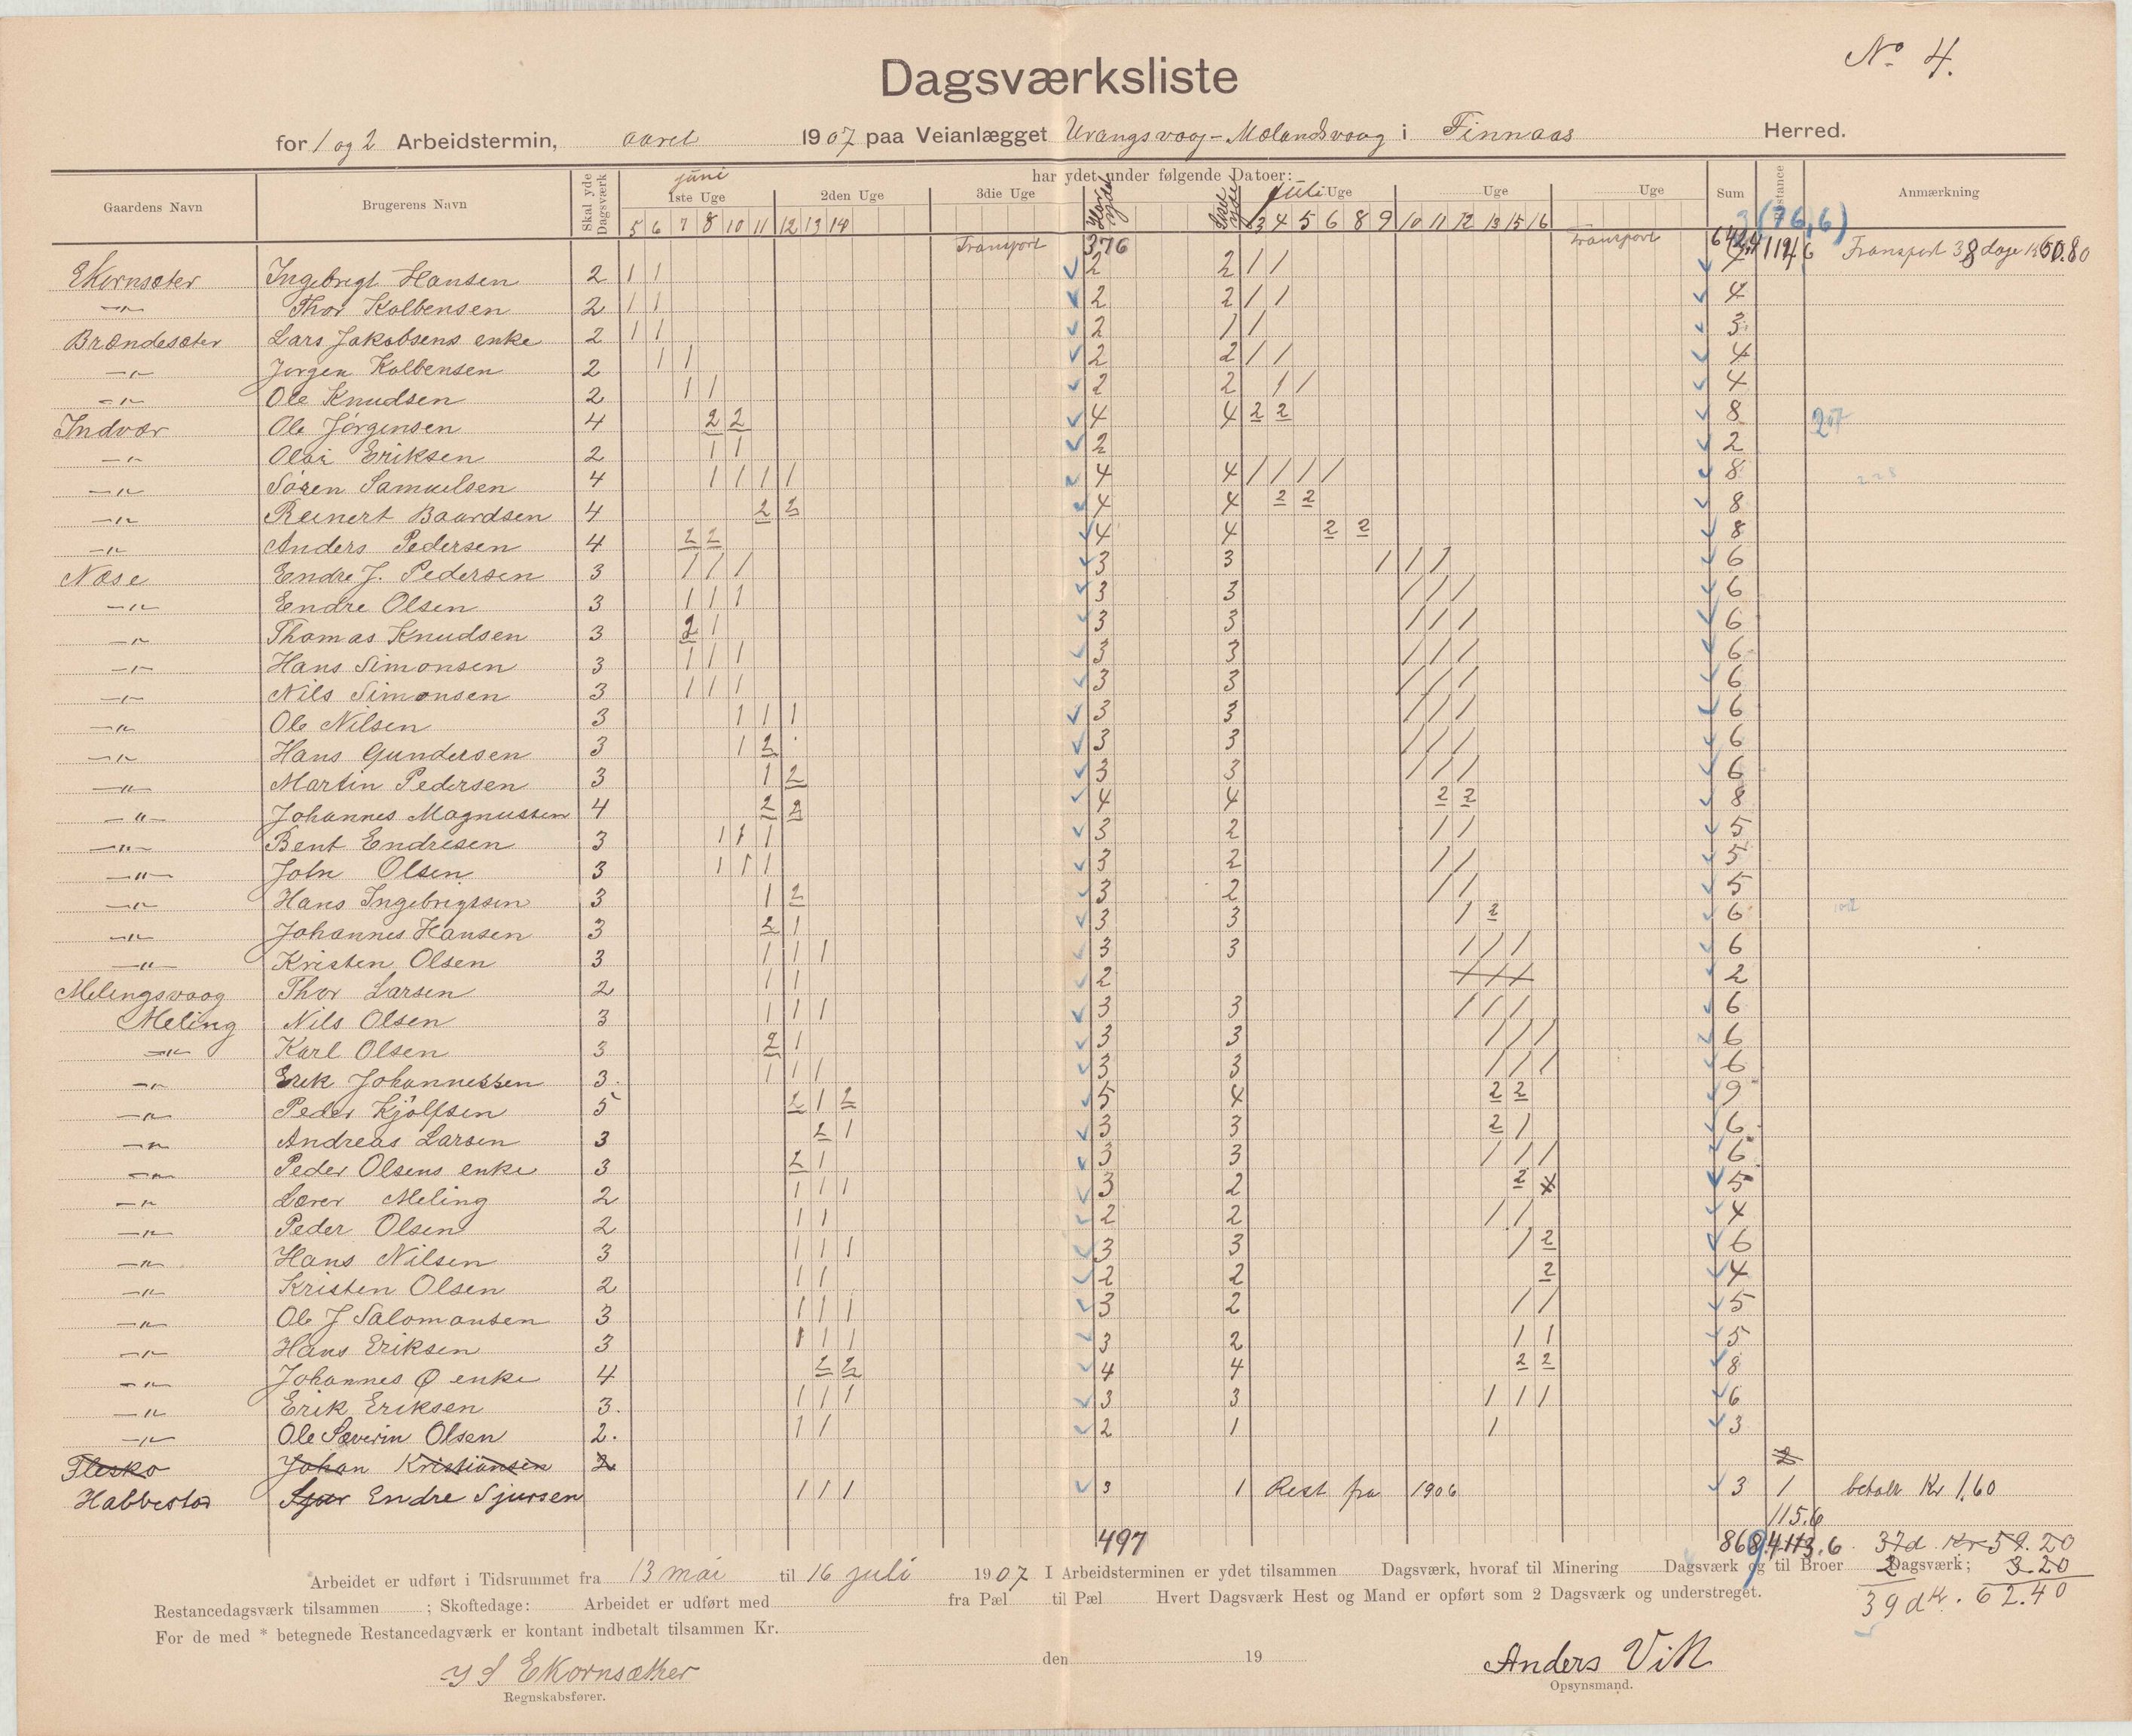 No 4.
Dagsværksliste
for 1 og 2 Arbeidstermin, aaret 1907 paa Veianlægget Urangsvaag - Mølandsvaag i Finnaas Herred.
har ydet under følgende Datoer:
Gaardens Navn Brugerens Navn Skal yde Dagsværk juni 1ste Uge 2den Uge 3die Uge Har ydet Skal yde Juli Uge Uge Uge Sum Restance Anmærkning
5 6 7 8 10 11 12 13 14 3 4 5 6 8 9 10 11 12 13 15 16 (76,6)
Transport 376 Transport Transport 38 dage
Ekornsæter Ingebrigt Hansen 2 1 1 2 2 1 1 4
—"— Thor Kolbensen 2 1 1 2 2 1 1 4
Brændesæter Lars Jakobsens enke 2 1 1 2 1 1 3
—"— Jørgen Kolbensen 2 1 1 2 2 1 1 4
—"— Ole Knudsen 2 1 1 2 2 1 1 4
Indvær Ole Jörgensen 4 2 2 4 4 2 2 8
—"— Olai Eriksen 2 1 1 2 2
—"— Sören Samuelsen 4 1 1 1 1 4 4 1 1 1 1 8
—"— Reinert Baardsen 4 2 2 4 4 2 2 8
—"— Anders Pedersen 4 2 2 4 4 2 2 8
Næse Endre J. Pedersen 3 1 1 1 3 3 1 1 1 6
—"— Endre Olsen 3 1 1 1 3 3 1 1 1 6
—"— Thomas Knudsen 3 2 1 3 3 1 1 1 6
—"— Hans Simonsen 3 1 1 1 3 3 1 1 1 6
—"— Nils Simonsen 3 1 1 1 3 3 1 1 1 6
—"— Ole Nilsen 3 1 1 1 3 3 1 1 1 6
—"— Hans Gundersen 3 1 2 3 3 1 1 1 6
—"— Martin Pedersen 3 1 2 3 3 1 1 1 6
—"— Johannes Magnussen 4 2 2 4 4 2 2 8
—"— Bent Endresen 3 1 1 1 3 2 1 1 5
—"— John Olsen 3 1 1 1 3 2 1 1 5
—"— Hans Ingebrigtsen 3 1 2 3 2 1 1 5
—"— Johannes Hansen 3 2 1 3 3 1 2 6
—"— Kristen Olsen 3 1 1 1 3 3 1 1 1 6
Melingsvaag Thor Larsen 2 1 1 2 1 1 1 2
Meling Nils Olsen 3 1 1 1 3 3 1 1 1 6
—"— Karl Olsen 3 2 1 3 3 1 1 1 6
—"— Erik Johannessen 3 1 1 1 3 3 1 1 1 6
—"— Peder Kjölfsen 5 2 1 2 5 4 2 2 9
—"— Andreas Larsen 3 2 1 3 3 2 1 6
—"— Peder Olsens enke 3 2 1 3 3 1 1 1 6
—"— Lærer Meling 2 1 1 1 3 2 2 5
—"— Peder Olsen 2 1 1 2 2 1 1 4
—"— Hans Nilsen 3 1 1 1 3 3 1 2 6
—"— Kristen Olsen 2 1 1 2 2 2 4
—"— Ole J Salomonsen 3 1 1 1 3 2 1 1 5
—"— Hans Eriksen 3 1 1 1 3 2 1 1 5
—"— Johannes Ø enke 4 2 2 4 4 2 2 8
—"— Erik Eriksen 3. 1 1 1 3 3 1 1 1 6
—"— Ole Severin Olsen 2. 1 1 2 1 1 3
Flesko Johan Kristiansen 2 2
Habbestad Endre Sjursen 1 1 1 3 1 Rest fra 1906 3 1 betalt Kr 1,60
115.6
497 37d Kr 59.20
Arbeidet er udført i Tidsrummet fra 13 mai til 16 juli 1907 I Arbeidsterminen er ydet tilsammen Dagsværk, hvoraf til Minering Dagsværk og til Broer Dagsværk; 2 3.20
Restancedagsværk tilsammen ; Skoftedage: Arbeidet er udført med fra Pæl til Pæl Hvert Dagsværk Hest og Mand er opført som 2 Dagsværk og understreget. 39 d Kr. 62.40
For de med * betegnede Restancedagværk er kontant indbetalt tilsammen Kr.
den 19
Ekornsæther Anders Vik
Regnskabsfører. Opsynsmand.